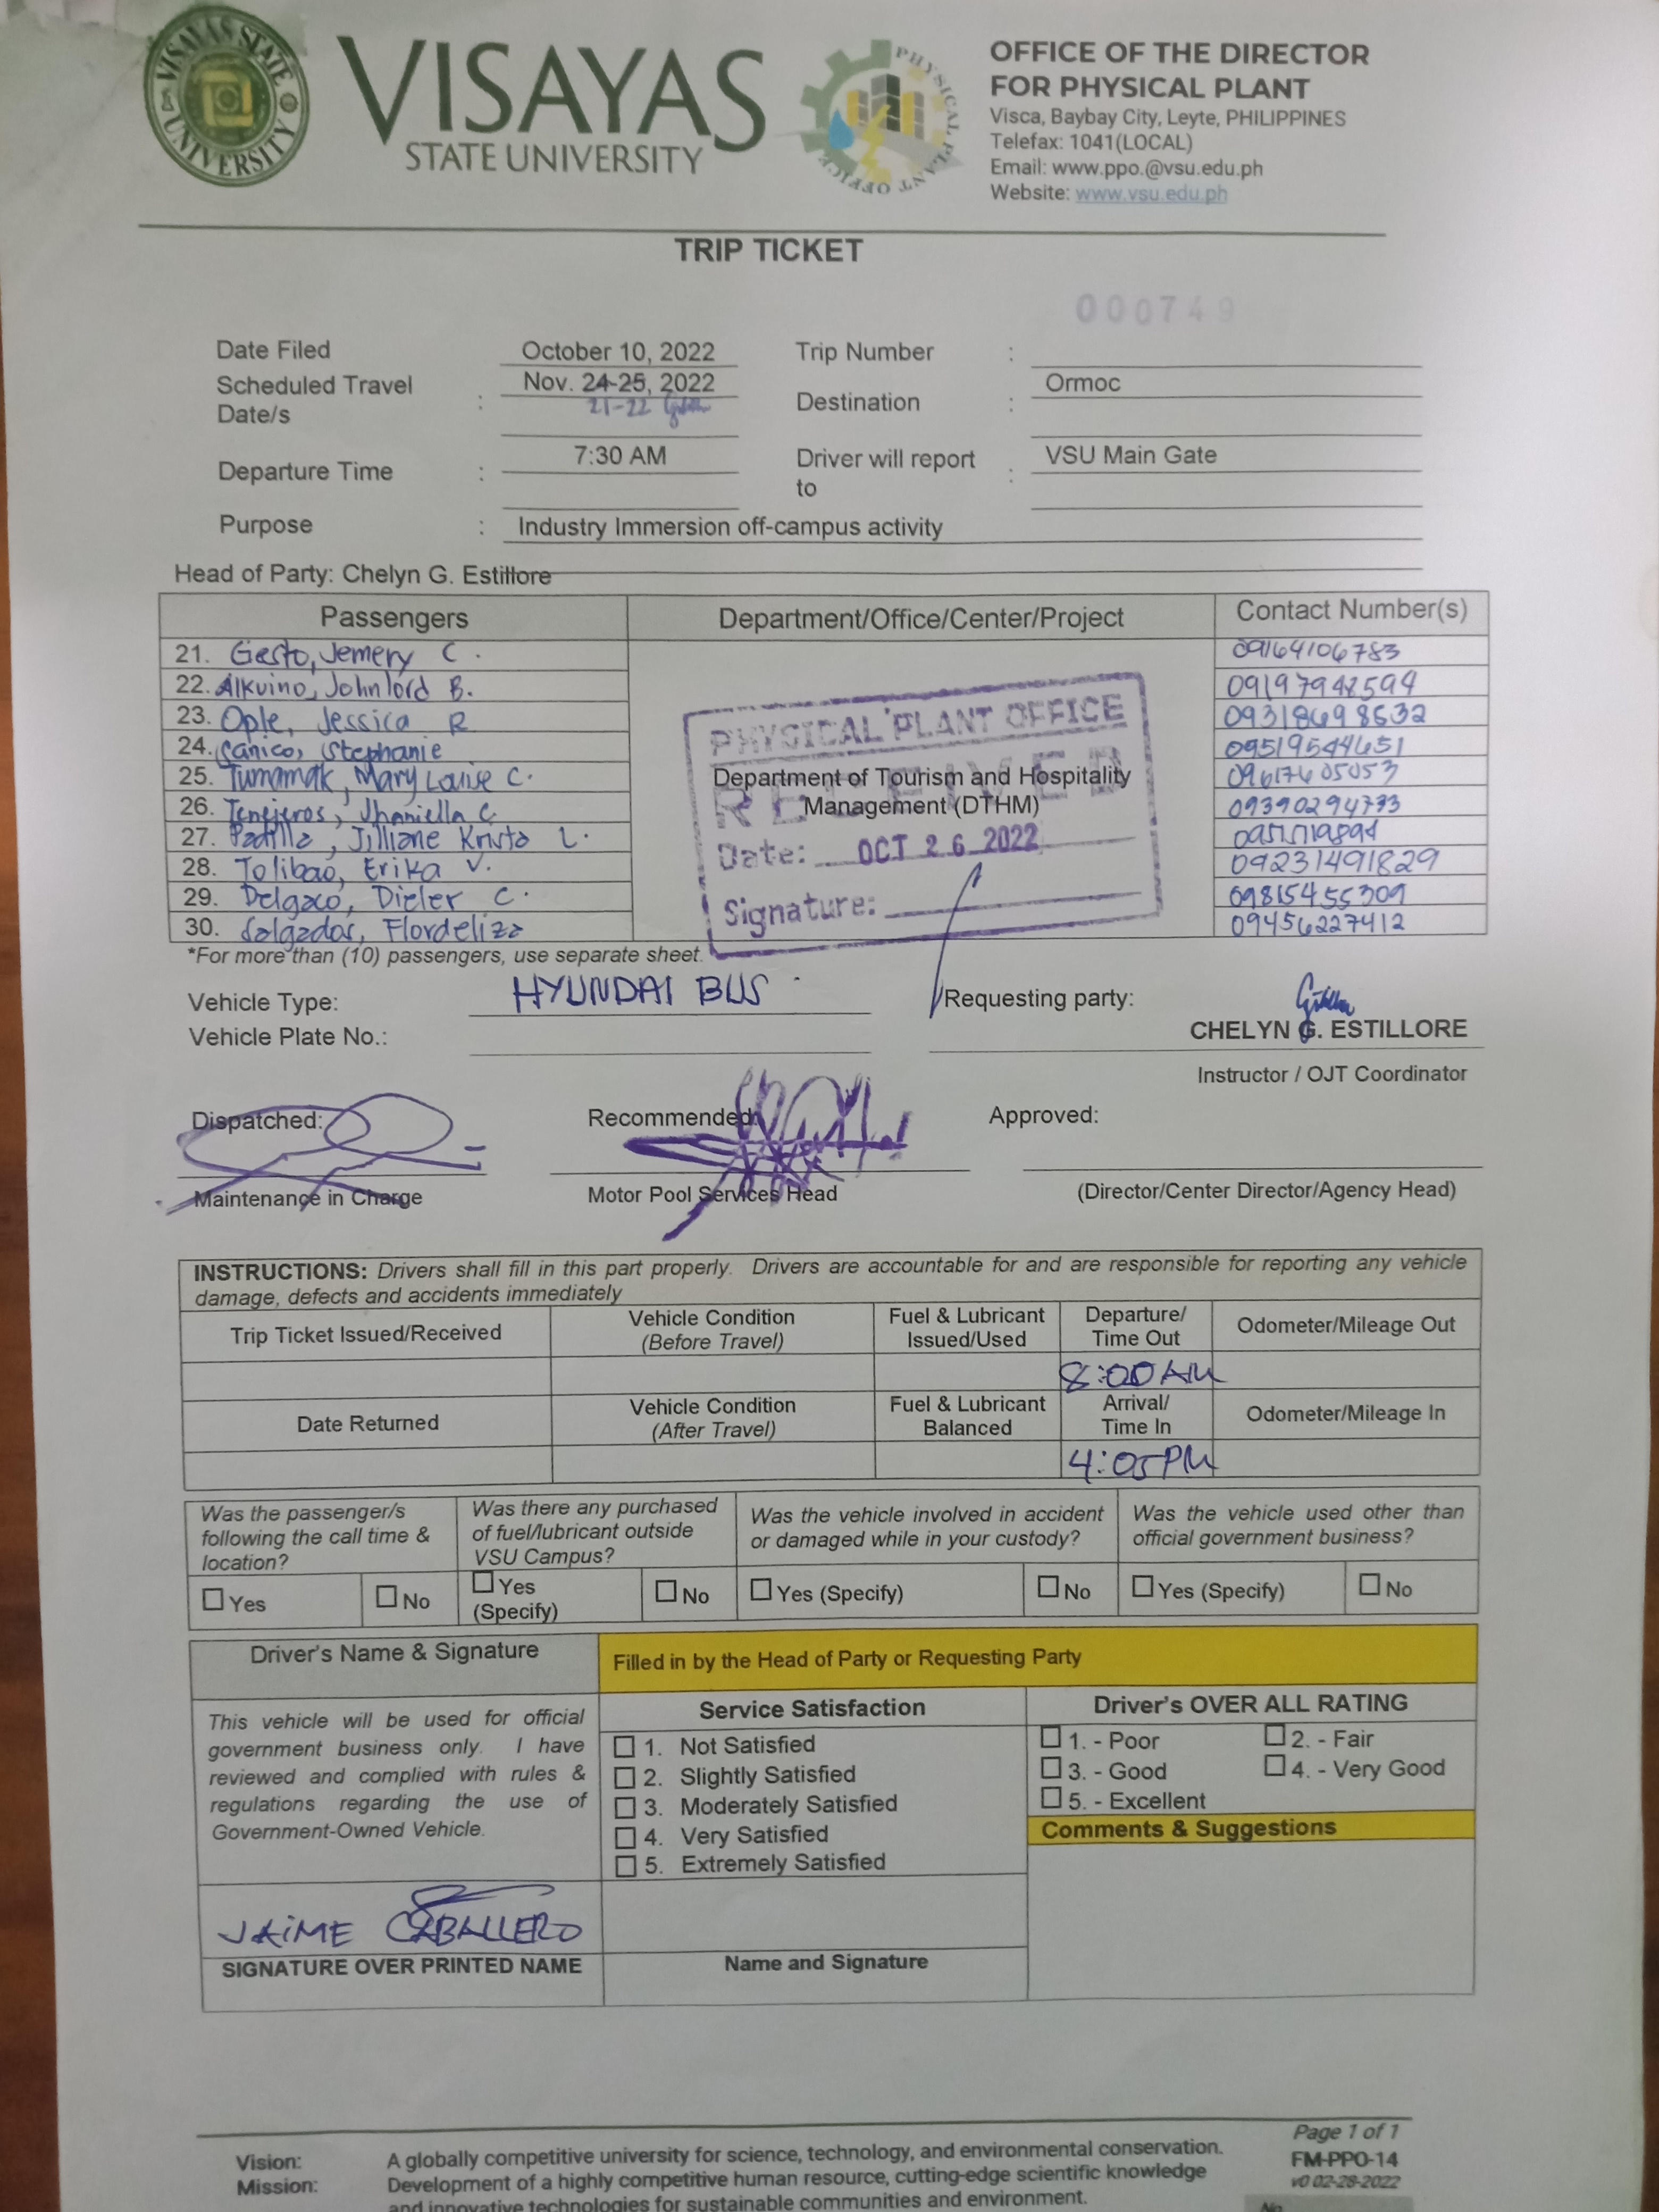 VISAYAS STATE UNIVERSITY
VISAYAS
STATE UNIVERSITY
PHYSICAL PLANT OFFICE
OFFICE OF THE DIRECTOR
FOR PHYSICAL PLANT
Visca, Baybay City, Leyte, PHILIPPINES
Telefax: 1041(LOCAL)
Email: www.ppo.@vsu.edu.ph
Website: www.vsu.edu.ph
TRIP TICKET
000749
Date Filed October 10, 2022 Trip Number :
Scheduled Travel Date/s : Nov. 24-25, 2022 Destination : Ormoc
21-22
Departure Time : 7:30 AM Driver will report to : VSU Main Gate
Purpose : Industry Immersion off-campus activity
Head of Party: Chelyn G. Estillore
Passengers Department/Office/Center/Project Contact Number(s)
21. Gesto, Jemery C. 09164106783
22. Alkuino, Johnlord B. 09197948594
23. Ople, Jessica R 09318698632
24. Canico, Stephanie 09519544651
25. Tumamak, Mary Louise C. 09617605053
26. Tenejeros, Jhaniella C. 09390294773
27. Padilla, Jilliane Krista L.
28. Tolibao, Erika V. 09231491829
29. Delgaco, Dieler C. 09815455309
30. Salgados, Flordeliza 09456227412
Department of Tourism and Hospitality
Management (DTHM)
PHYSICAL PLANT OFFICE
RECEIVED
Date: OCT 26 2022
Signature:
*For more than (10) passengers, use separate sheet.
Vehicle Type: HYUNDAI BUS Requesting party:
Vehicle Plate No.: CHELYN G. ESTILLORE
Instructor / OJT Coordinator
Dispatched: Recommended: Approved:
Maintenance in Charge Motor Pool Services Head (Director/Center Director/Agency Head)
INSTRUCTIONS: Drivers shall fill in this part properly. Drivers are accountable for and are responsible for reporting any vehicle
damage, defects and accidents immediately
Trip Ticket Issued/Received Vehicle Condition (Before Travel) Fuel & Lubricant Issued/Used Departure/ Time Out Odometer/Mileage Out
8:00 AM
Date Returned Vehicle Condition (After Travel) Fuel & Lubricant Balanced Arrival/ Time In Odometer/Mileage In
4:05 PM
Was the passenger/s following the call time & location? Was there any purchased of fuel/lubricant outside VSU Campus? Was the vehicle involved in accident or damaged while in your custody? Was the vehicle used other than official government business?
Yes No Yes (Specify) No Yes (Specify) No Yes (Specify) No
Driver's Name & Signature Filled in by the Head of Party or Requesting Party
This vehicle will be used for official
government business only. I have
reviewed and complied with rules &
regulations regarding the use of
Government-Owned Vehicle.
Service Satisfaction
1. Not Satisfied
2. Slightly Satisfied
3. Moderately Satisfied
4. Very Satisfied
5. Extremely Satisfied
Driver's OVER ALL RATING
1. - Poor 2. - Fair
3. - Good 4. - Very Good
5. - Excellent
Comments & Suggestions
JAIME CABALLERO
SIGNATURE OVER PRINTED NAME Name and Signature
Page 1 of 1
FM-PPO-14
v0 02-28-2022
No.
Vision: A globally competitive university for science, technology, and environmental conservation.
Mission: Development of a highly competitive human resource, cutting-edge scientific knowledge
and innovative technologies for sustainable communities and environment.